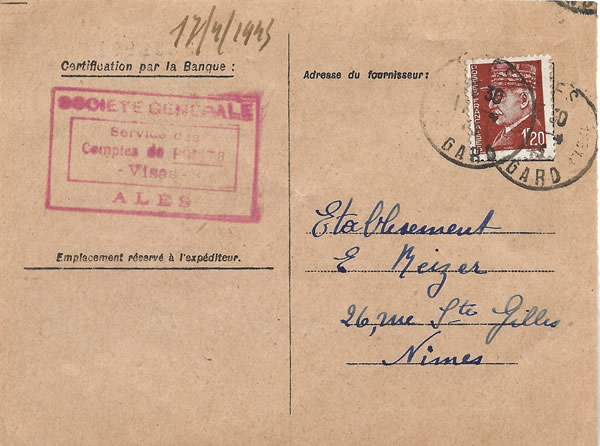 17/4/1943
Certification par la Banque :
SOCIÉTÉ GÉNÉRALE
Service des
Comptes de
- Visas -
ALÈS
Emplacement réservé à l'expéditeur.
Adresse du fournisseur :
1F20
GARD
GARD
Etablisement
E Meizer
26, rue Ste Gilles
Nimes